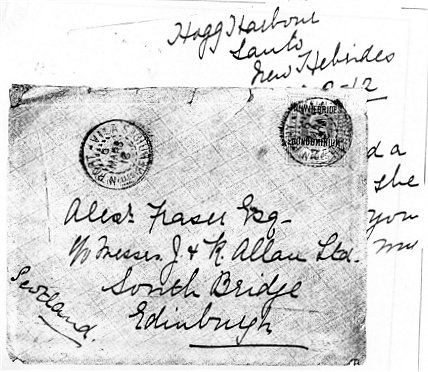 Hogg Harbour
Santo
New Hebrides
9-12
d a
she
you
VILA
NEW HEBRIDES
CONDOMINIUM
Alexr. Fraser Esq-
c/o Messrs. J & R. Allan Ltd.
South Bridge
Edinburgh
Scotland.